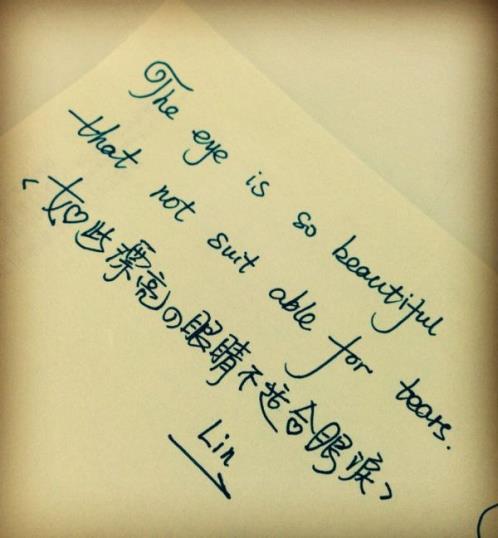 The eye is so beautiful
that not suit able for tears.
〈如此漂亮の眼睛不适合眼淚〉
Lin